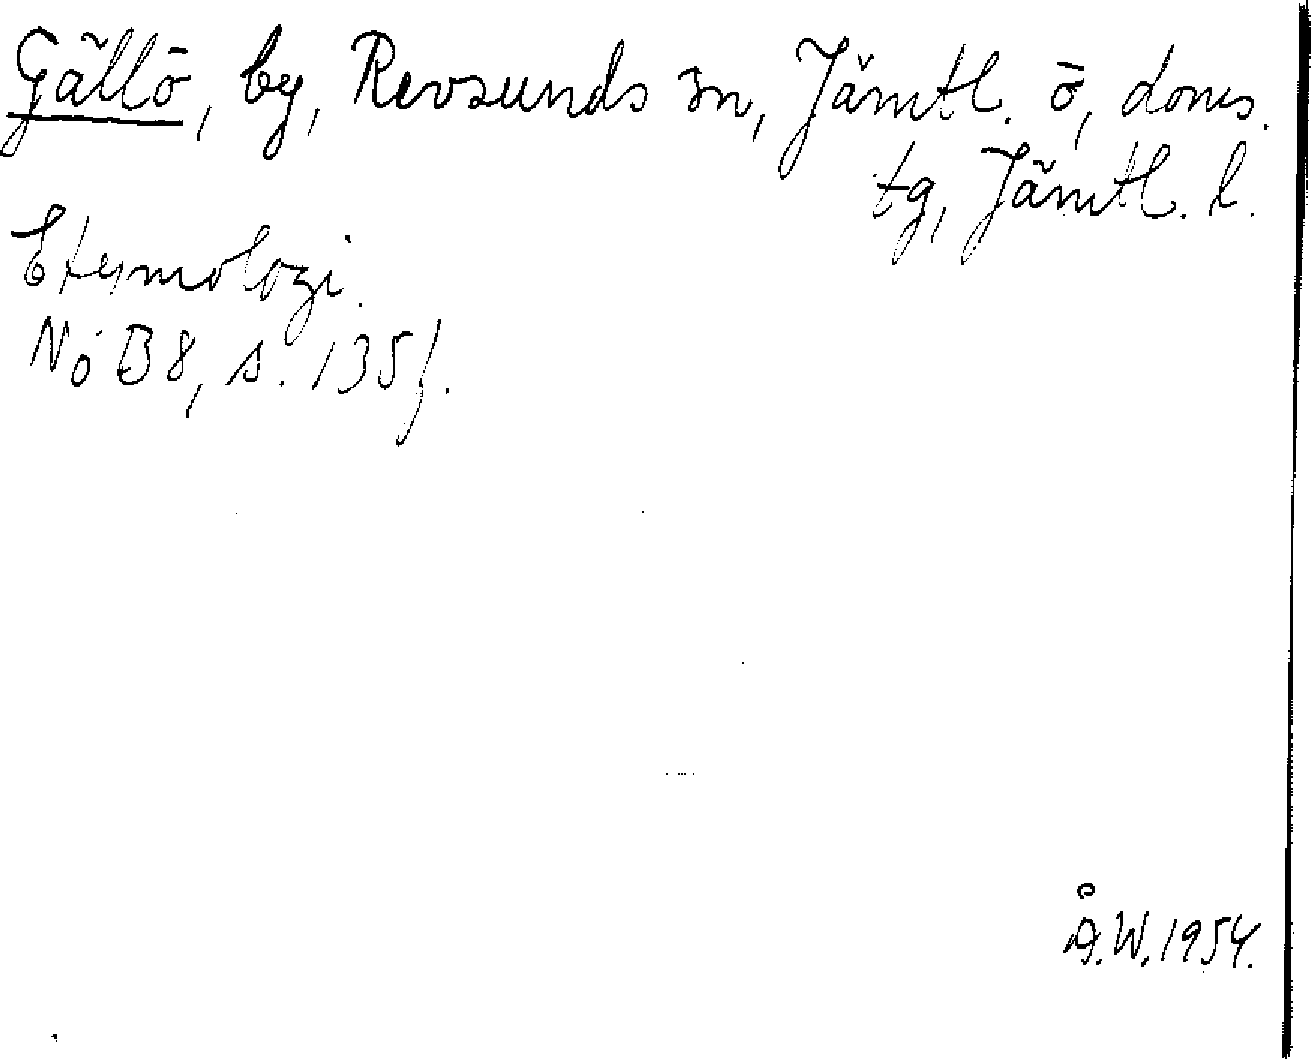 Gällö, by, Revsunds sn, Jämtl. ö, doms.
tg, Jämtl. l.
Etymologi.
NoB 8, s. 135f.
Å.W. 1954.